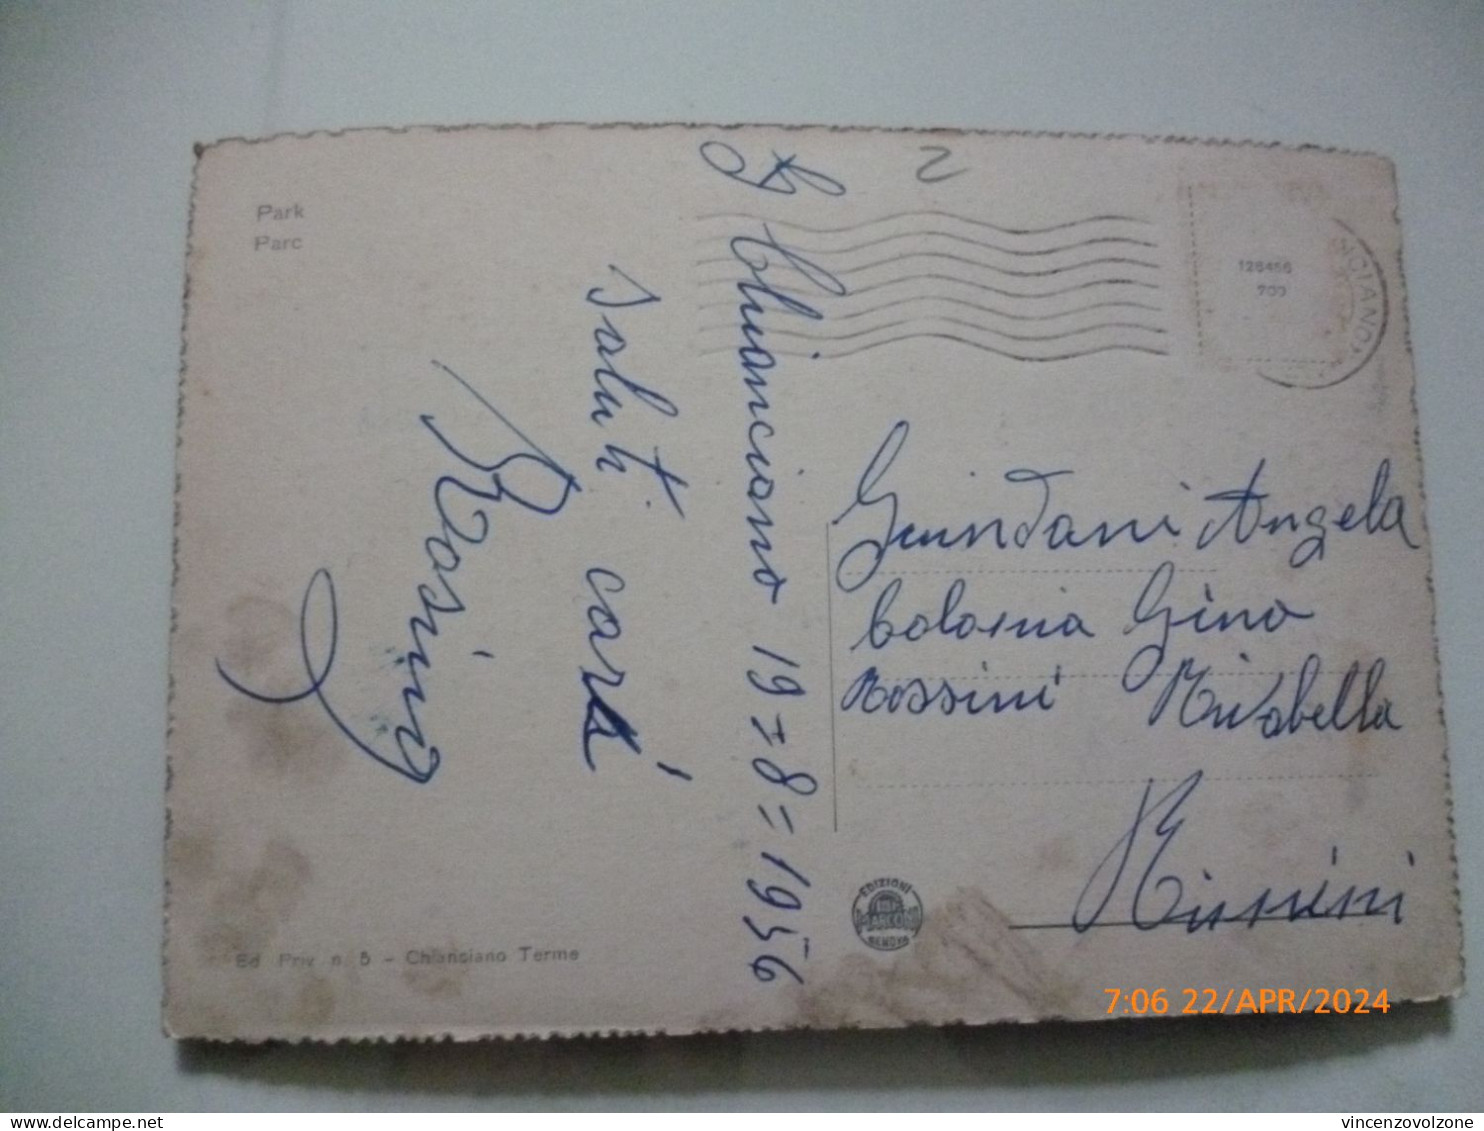 Park
Parc
Chianciano 19=8=1956
saluti cari
Rosina
Guindani Angela
Colonia Gino
Rossini Mirabella
Rimini
128456
700
EDIZIONI
MARCONI
GENOVA
Ed. Priv. n. 5 - Chianciano Terme
7:06 22/APR/2024
delcampe.net
vincenzovolzone